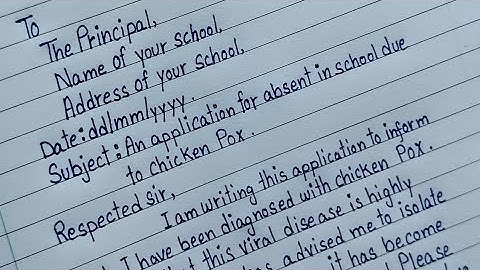 To
The Principal,
Name of your school,
Address of your school,
Date: dd/mm/yyyy.
Subject: An application for absent in school due
to chicken Pox.
Respected sir,
I am writing this application to inform
I have been diagnosed with chicken Pox.
this viral disease is highly
advised me to isolate
it has become
Please